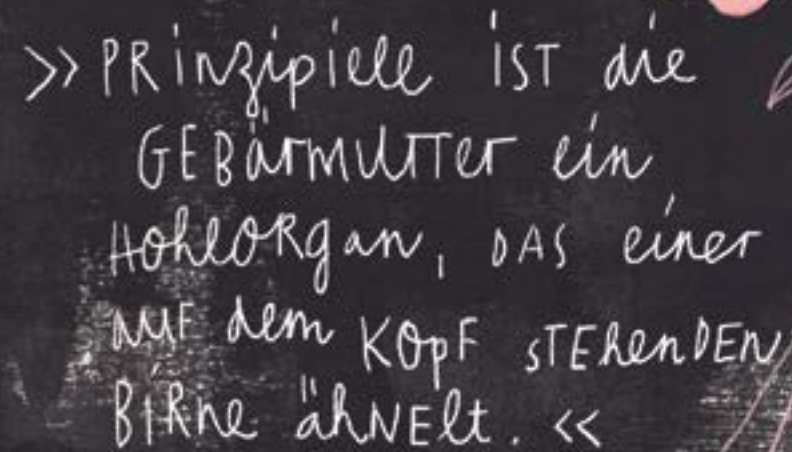 >> PRinzipiell IST die
GEBärmUTTer ein
HohlORgan, DAS einer
AUF dem KOpF STEhenDEN
BIRne ähNElt. <<